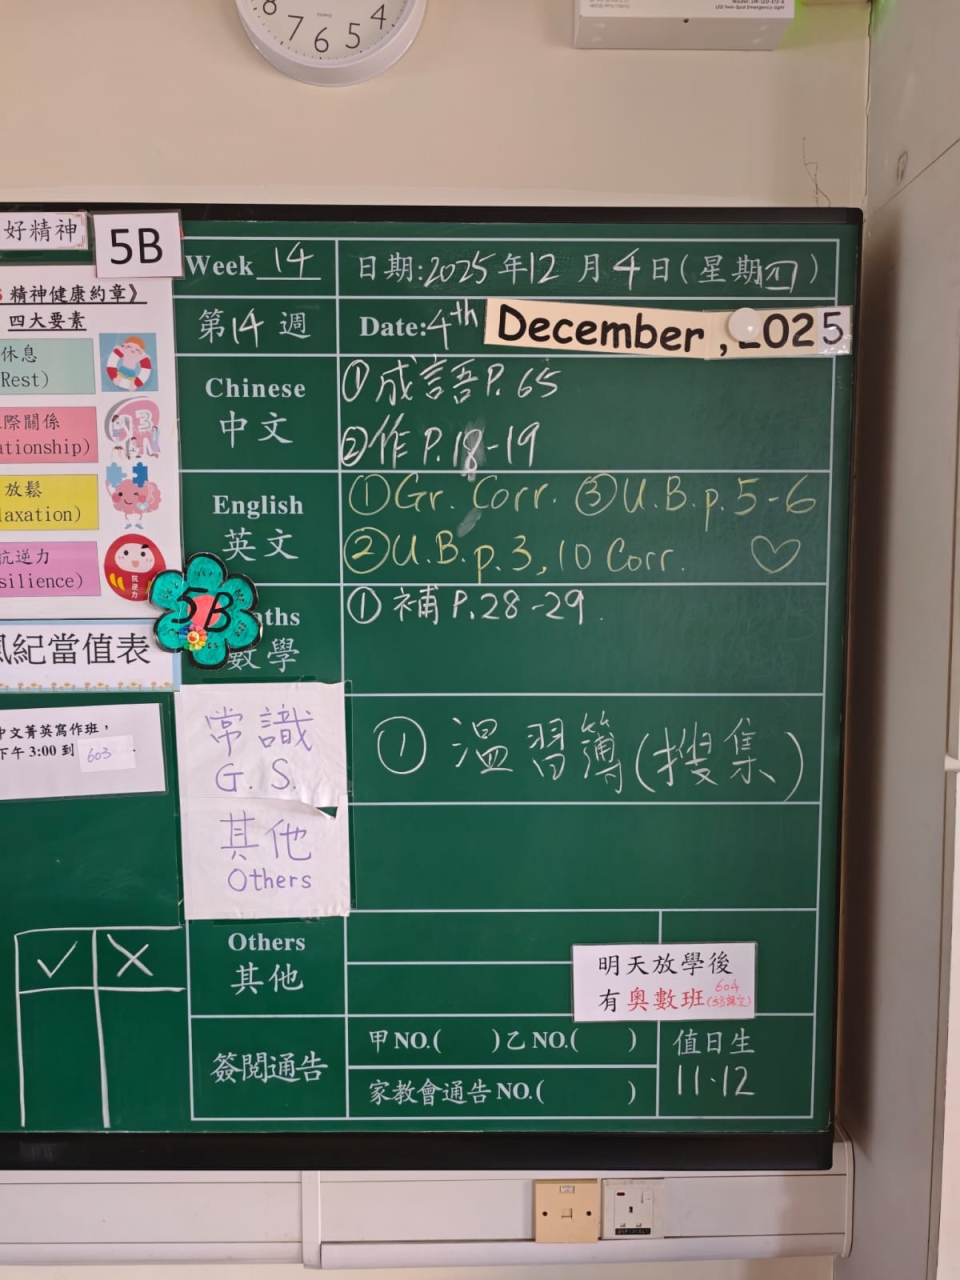 8 7 6 5 4
好精神
5B
精神健康約章》
四大要素
休息
Rest)
際關係
ationship)
放鬆
axation)
抗逆力
silience)
抗逆力
5B
風紀當值表
中文菁英寫作班，
下午 3:00 到 603
✓ ✗
Week 14
日期:2025年12月4日(星期四)
第14週
Date:4th December ,2025
Chinese
中文
①成語P.65
②作P.18-19
English
英文
①Gr. Corr. ③U.B.p.5-6
②U.B.p.3,10 Corr. ♡
ths
數學
①補P.28-29.
常識
G.S.
①溫習簿(搜集)
其他
Others
Others
其他
明天放學後
有奧數班
604
簽閱通告
甲NO.( )乙NO.( )
家教會通告NO.( )
值日生
11.12